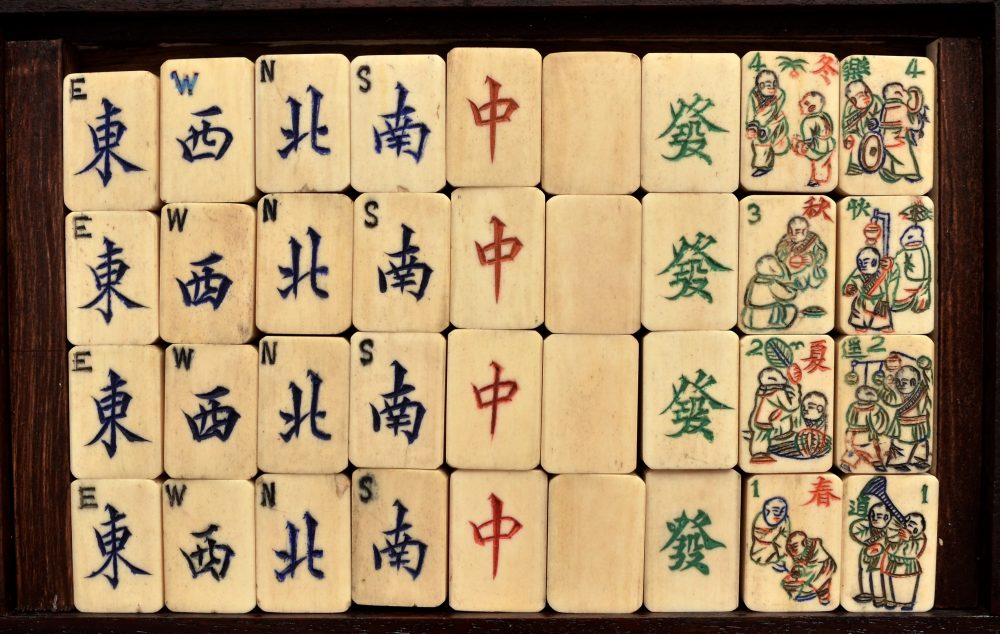 E 東 W 西 N 北 S 南 中 發 4 冬 樂 4
E 東 W 西 N 北 S 南 中 發 3 秋 快
E 東 W 西 N 北 S 南 中 發 2 夏 2
E 東 W 西 N 北 S 南 中 發 1 春 1